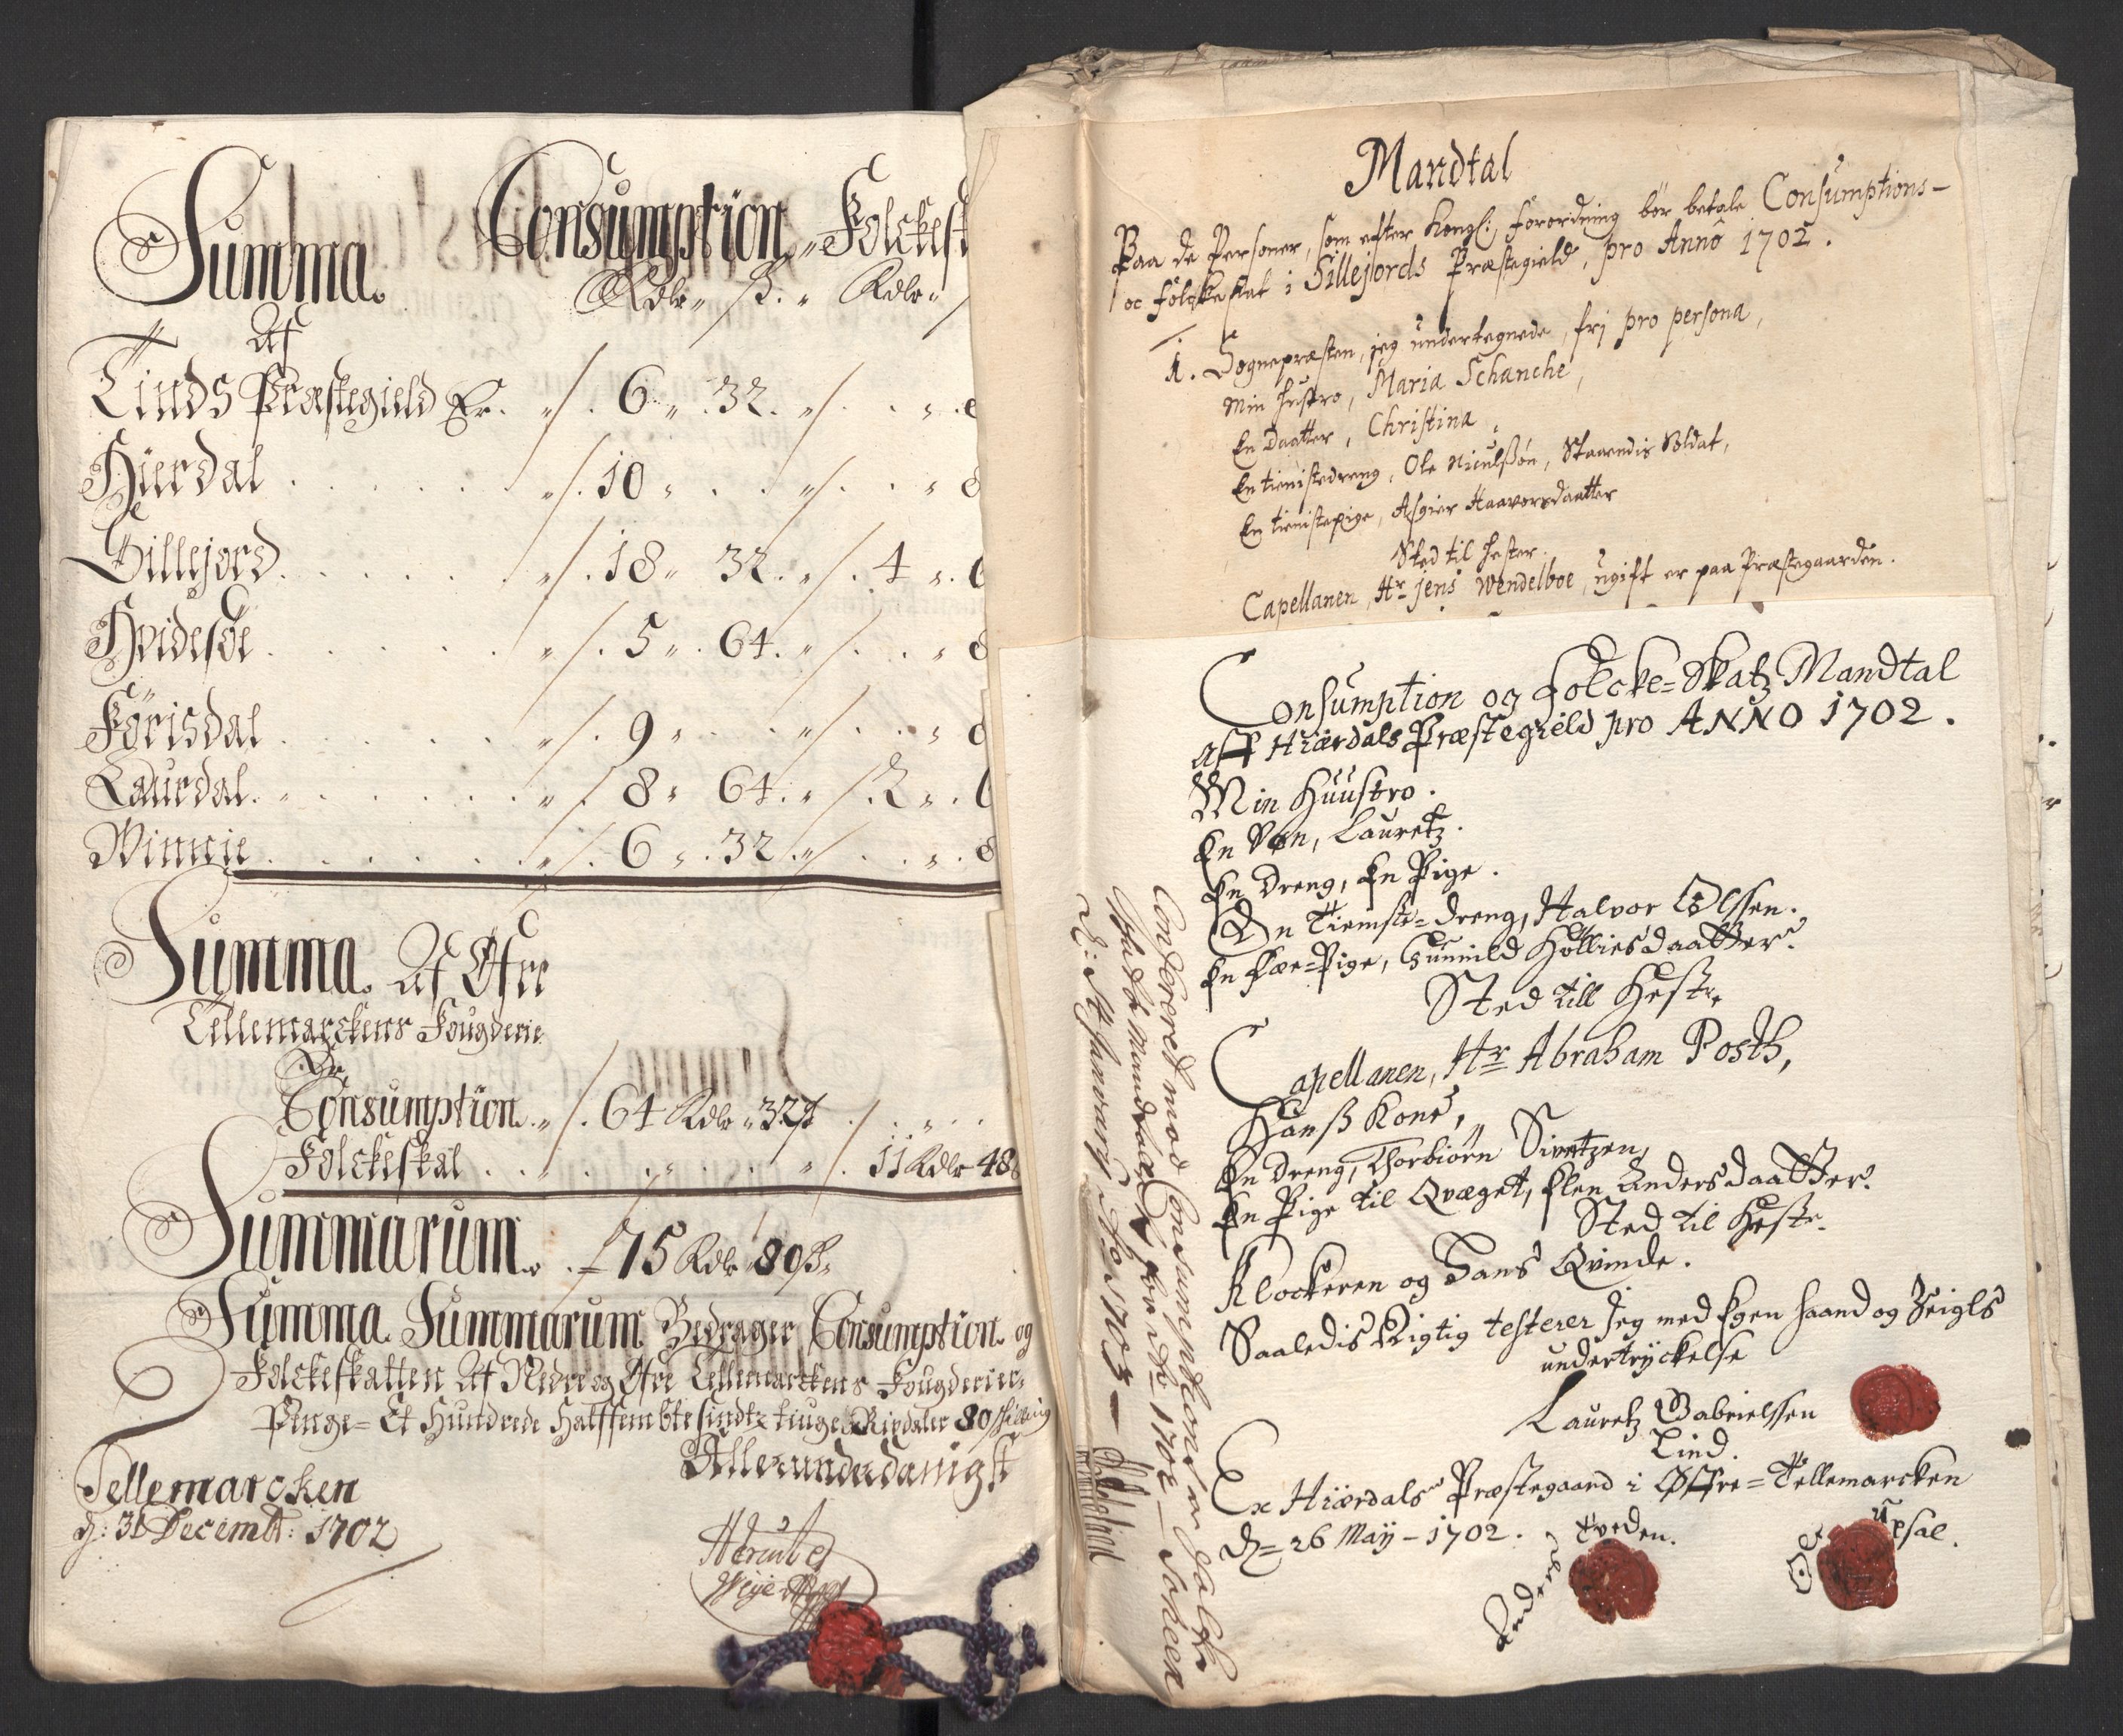 Summa. Consumption „ Folckesk
Rdlr „ ß. „ Rdlr „
Af
Tinds Præstegield Er. „/. 6 „ 32. „/. . „ .
Hierdal . . . . . „/. 10 „ . . „/. . „
Sillejord . . . . . „/. 18 „ 32. „/. 4 „.
Hvidesøe . . . . . „/. 5 „. 64. „/. . „
Førisdal . . . . . „/. 9 „ . . „/. . „
Laurdal. . . . . . „/. 8 „ 64. „/. 2 „.
Winnie . . . . . „/. 6 „. 32. „/. . „
Summa. Af Øfre
Tellemarckens Fougderie
Er
Consumption. „/. 64 Rdlr „ 32 ß
Folckeskat . . . . . „/. 11 Rdlr 48
Summarum. . = 75 Rdlr 80 ß.
Summa Summarum Bedrager Consumption og
Folckeskatten Af Nedre og Øfre Tellemarckens Fougderier,
Penge = Et Hundrede Halffembtesindtztiuge Rixdaler 80 skilling
Allerunderdanigst
Tellemarcken
d: 31 Decembr: 1702
Mandtal
Paa de Personer, som efter Kongl: Forordning bör betale Consumptions-
oc Folcke skat i Sillejords Præstegield, pro Anno 1702.
1. Sognepræsten, jeg undertegnede, fri pro persona,
Min Hustro, Maria Schanche,
En Daatter, Christina,
En tienistedreng, Ole Niculßön, Staaendis Soldat,
En tienistepige, Asgier Haavorsdaatter
Sted til Hester.
Capellanen, Hr Jens Wendelboe, ugift er paa Præstegaarden.
Consumption og Folcke=Skatz Mandtal
aff Hiærdals Præstegield pro ANNO 1702.
Min Huustro.
En Søn, Lauretz.
En Dreng, En Pige.
En Tieniste=dreng, Halvor Olssen.
En Fæe=Pige, Gunnild Hølliesdaatter.
Sted till Heste.
Capellanen, Hr Abraham Posth,
Hanß Kone,
En Dreng, Thorbiørn Sivertzen,
En Pige til Qvæget, Elen Andersdaatter.
Sted til Heste.
Klockeren og Hans Qvinde.
Saaledis Rigtig testerer Jeg med Egen Haand og Zeigls
undertryckelse
Lauretz Gabrielssen
Lind.
Ex Hiærdals Præstegaard i Øffre=Tellemarcken
d= 26 Maij - 1702.
Anders Tveden.
Ole Upsal.
Confereret mod Consumptions